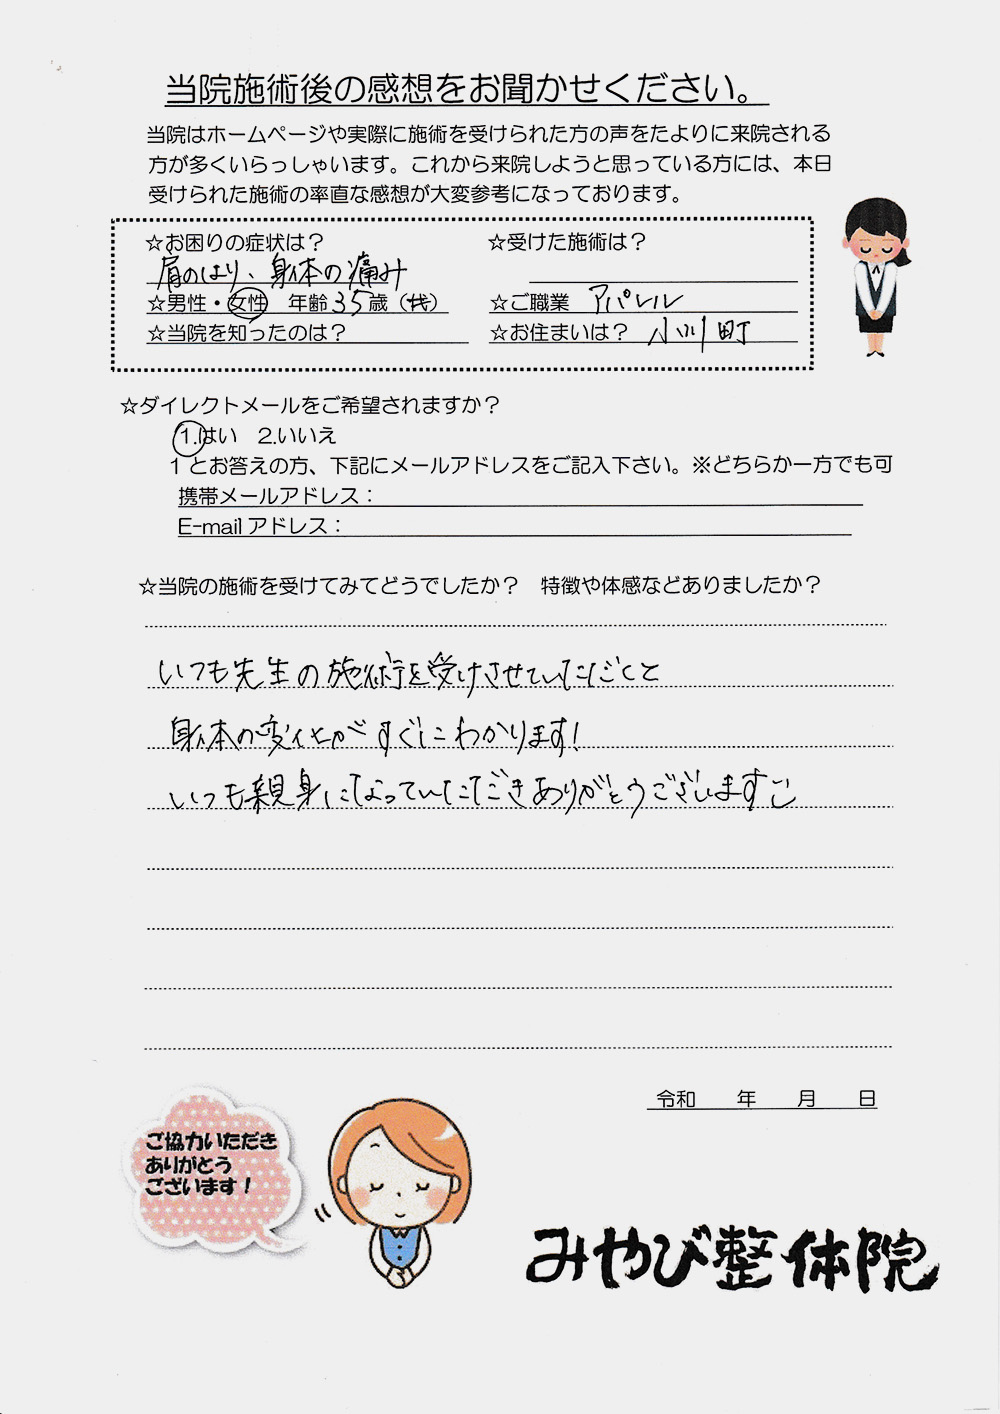 当院施術後の感想をお聞かせください。
当院はホームページや実際に施術を受けられた方の声をたよりに来院される
方が多くいらっしゃいます。これから来院しようと思っている方には、本日
受けられた施術の率直な感想が大変参考になっております。
☆お困りの症状は？ ☆受けた施術は？
肩のはり、身体の痛み
☆男性・女性 年齢35歳（代） ☆ご職業 アパレル
☆当院を知ったのは？ ☆お住まいは？ 小川町
☆ダイレクトメールをご希望されますか？
1.はい 2.いいえ
1とお答えの方、下記にメールアドレスをご記入下さい。※どちらか一方でも可
携帯メールアドレス：
E-mailアドレス：
☆当院の施術を受けてみてどうでしたか？ 特徴や体感などありましたか？
いつも先生の施術を受けさせていただくと
身体の変化がすぐにわかります！
いつも親身になっていただきありがとうございます
令和 年 月 日
ご協力いただき
ありがとう
ございます！
みやび整体院